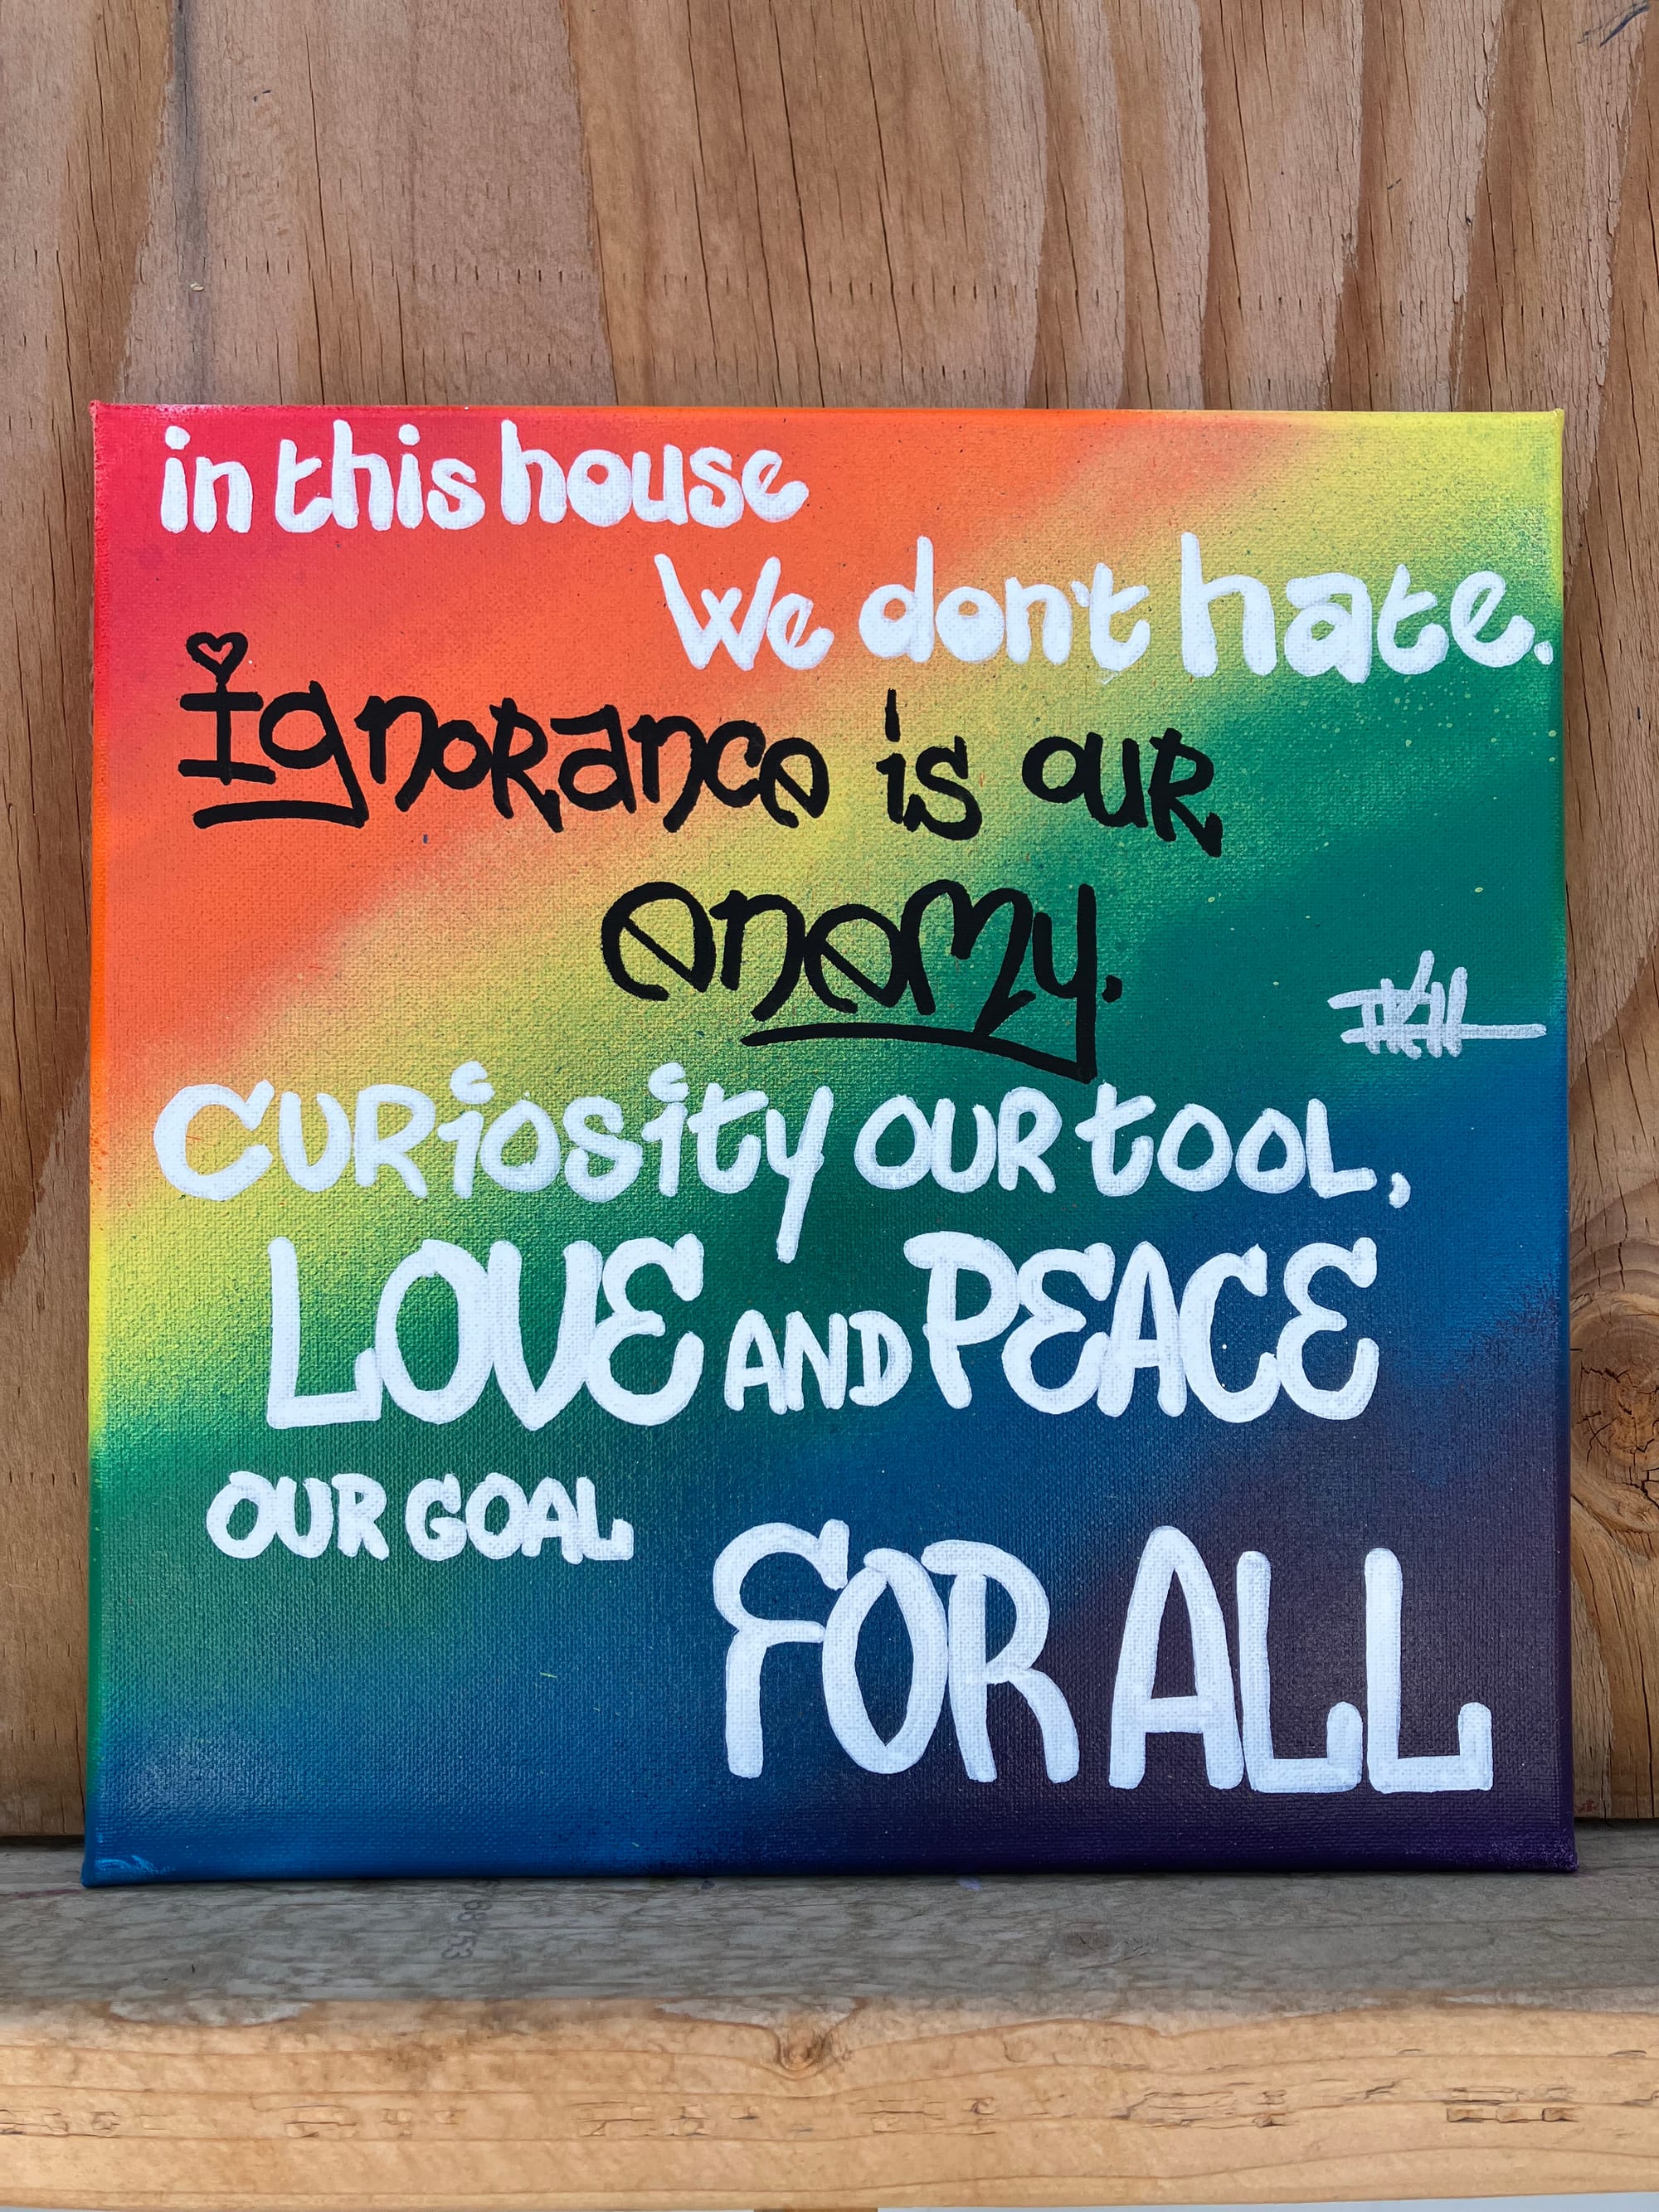 in this house
We don't hate.
Ignorance is our
enemy.
CURiosity OUR tOOL,
LOVE AND PEACE
OUR GOAL
FOR ALL